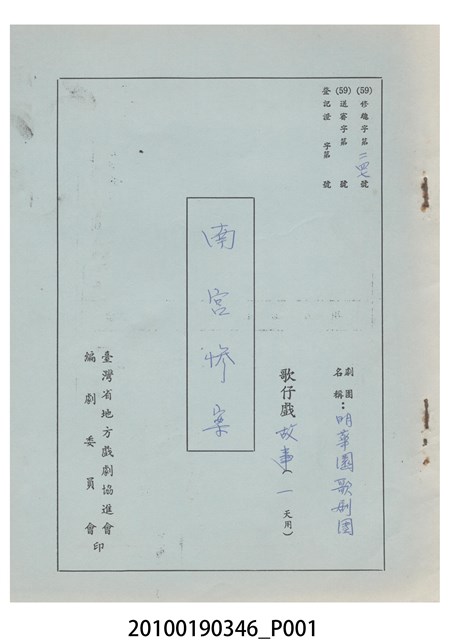 (59)修癒字第二四七號
(59)送審字第 號
登記證 字第 號
劇團名稱：明華園歌劇團
歌仔戲故事（一天用）
南宮慘案
臺灣省地方戲劇協進會
編劇委員會印
20100190346_P001